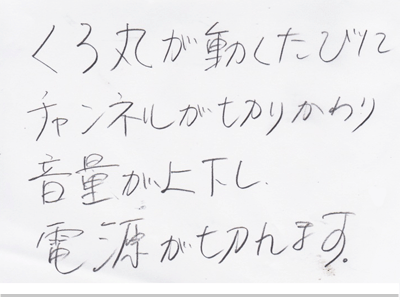 くろ丸が動くたびに
チャンネルが切りかわり
音量が上下し、
電源が切れます。